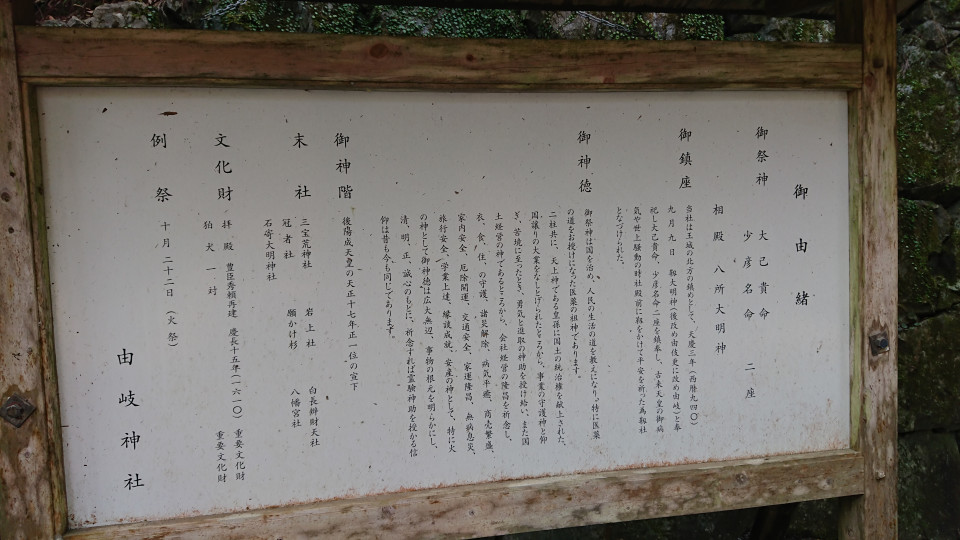 御由緒
御祭神 大己貴命
少彦名命 二座
相殿 八所大明神
御鎮座 当社は王城の北方の鎮めとして、天慶三年(西暦九四〇)
九月九日 靫大明神(後改め由伎更に改め由岐)と奉
祝し大己貴命、少彦名命二座を鎮奉し、古来天皇の御病
気や世上騒動の時社殿前に靫をかけて平安を祈った為靫社
となづけられた。
御神徳 御祭神は国を治め、人民の生活の道を教えになり、特に医薬
の道をお授けになった医薬の祖神であります。
二社共に、天上神である皇孫に国土の統治権を献上された、
国譲りの大業をなしとげられたところから、事業の守護神と仰
ぎ、苦境に至ったとき、勇気と進取の神助を授け給い、また国
土経営の神であるところから、会社経営の隆昌を祈念し、
衣、食、住、の守護、諸災解除、病気平癒、商売繁盛、
家内安全、厄除開運、交通安全、家運隆昌、無病息災、
旅行安全、学業上達、縁談成就、安産の神として、特に火
の神として御神徳は広大無辺、事物の根元を明らかにし、
清、明、正、誠心のもとに、祈念すれば霊験神助を授かる信
仰は昔も今も同じであります。
御神階 後陽成天皇の天正十七年正一位の宣下
末社 三宝荒神社 岩上社 白長辨財天社
冠者社 願かけ杉 八幡宮社
石寄大明神社
文化財 拝殿 豊臣秀頼再建 慶長十五年(一六一〇) 重要文化財
狛犬一対 重要文化財
例祭 十月二十二日(火祭)
由岐神社